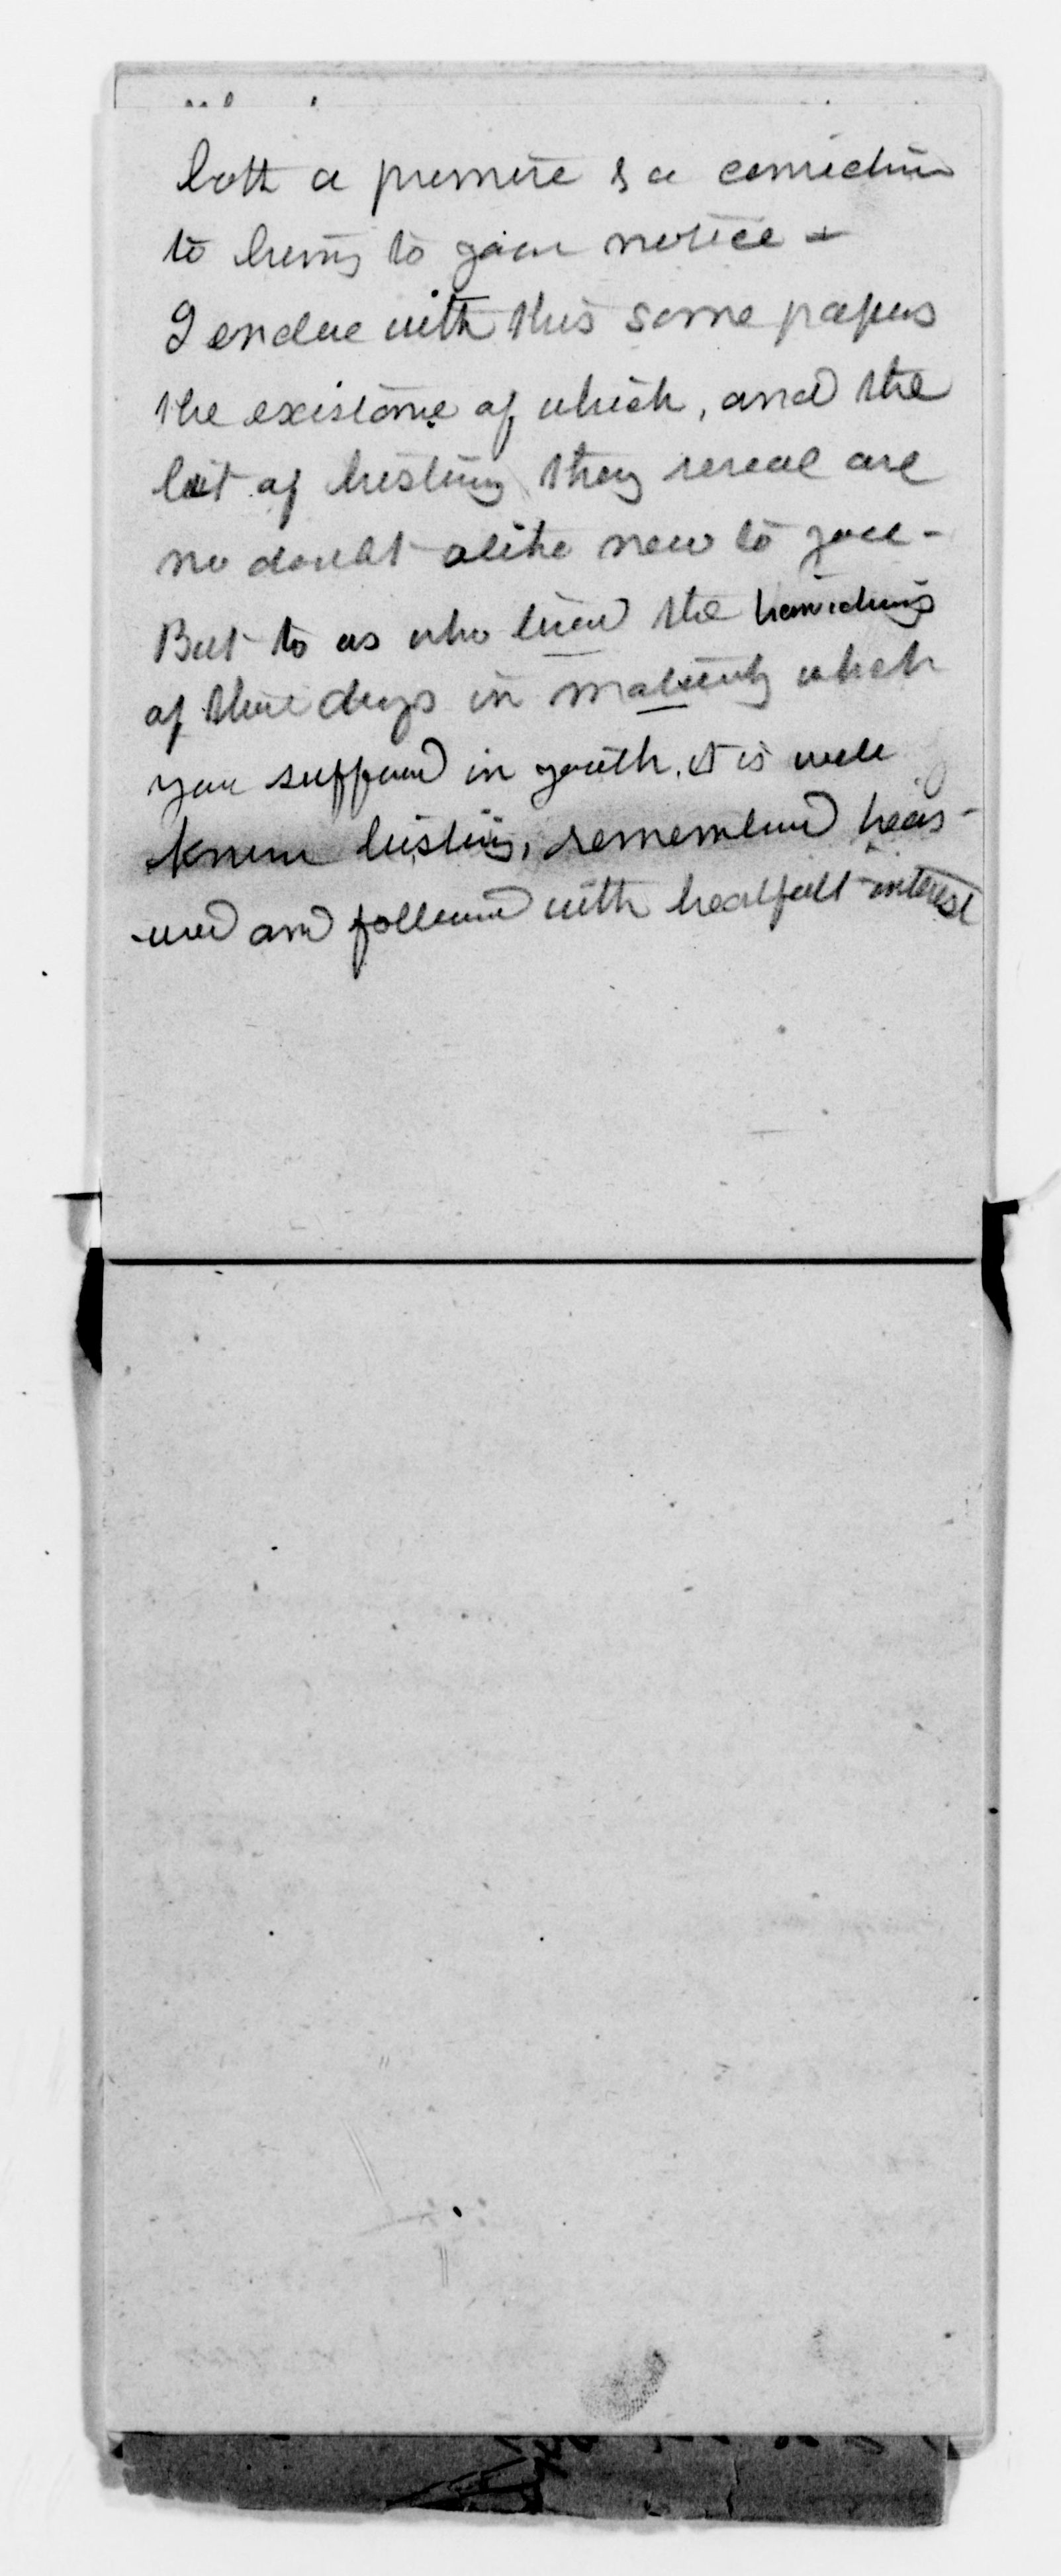 both a pleasure & a conviction
to bring to your notice -
I enclose with this some papers
the existence of which, and the
bit of history they reveal are
no doubt alike new to you -
But to us who lived the
of those days in maturity which
you suffered in youth, it is well
known history, remembered treas-
ured and followed with heartfelt interest